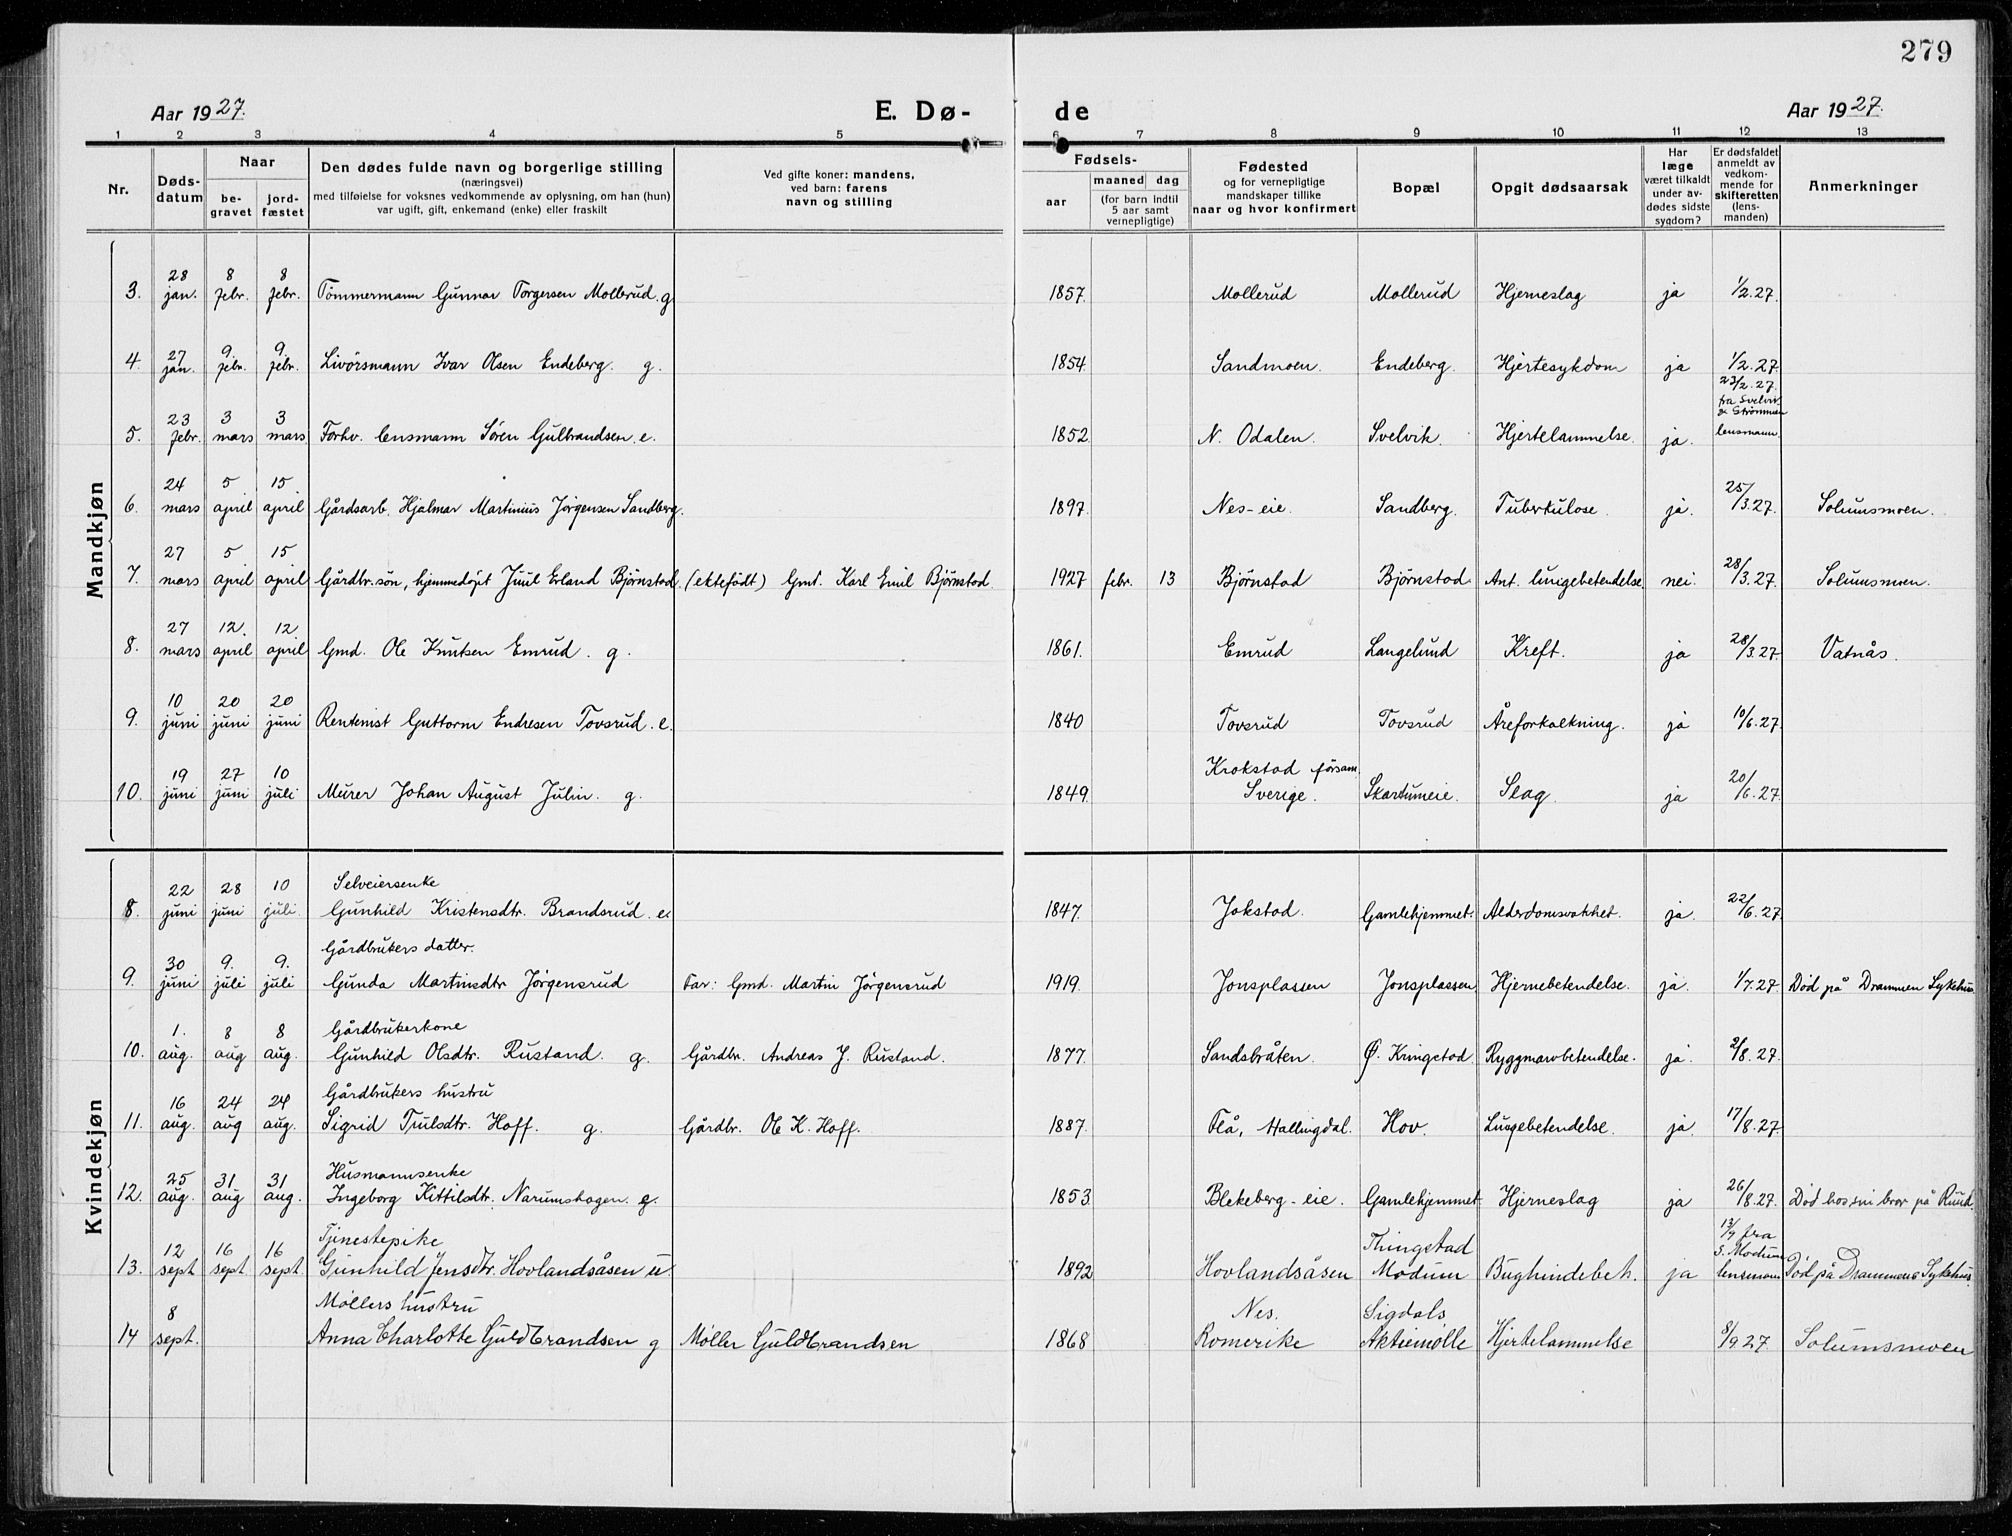 279
Aar 1927. E. Dø- de Aar 1927.
1 2 3 4 5 6 7 8 9 10 11 12 13
Nr. Døds-datum Naar be-gravet jord-fæstet Den dødes fulde navn og borgerlige stilling (næringsvei) med tilføielse for voksnes vedkommende av oplysning, om han (hun) var ugift, gift, enkemand (enke) eller fraskilt Ved gifte koner: mandens, ved barn: farens navn og stilling Fødsels- aar maaned dag (for barn indtil 5 aar samt vernepligtige) Fødested og for vernepligtige mandskaper tillike naar og hvor konfirmert Bopæl Opgit dødsaarsak Har læge været tilkaldt under av-dødes sidste sygdom? Er dødsfaldet anmeldt av vedkom-mende for skifteretten (lens-manden) Anmerkninger
Mandkjøn
3. 28 jan. 8 febr. 8 febr. Tømmermann Gunnar Torgersen Mollerud. g 1857. Mollerud Mollerud Hjerneslag ja 1/2.27.
4. 27 jan. 9. febr. 9. febr. Livörsmann Ivar Olsen Endeberg. g. 1854 Sandmoen. Endeberg. Hjertesykdom ja 1/2.27.
5. 23 febr. 3 mars 3 mars Forhv. lensmann Søren Gulbrandsen. e. 1852 N. Odalen. Svelvik. Hjertelammelse. ja. 23/2.27. fra Svelvik & Strømmen lensmann.
6. 24 mars 5 april 15 april Gårdsarb. Hjalmar Martinius Jørgensen Sandberg. 1897. Nes-eie. Sandberg. Tuberkulose. ja. 25/3.27. Solumsmoen.
7. 27 mars 5 april 15 april Gårdbr. søn, hjemmedøpt Juul Erland Bjørnstad (ektefødt) Gmd. Karl Emil Bjørnstad. 1927 febr. 13 Bjørnstad Bjørnstad Ant. lungebetendelse. nei. 28/3.27. Solumsmoen.
8. 27 mars 12. april 12 april Gmd. Ole Knutsen Emrud. g. 1861. Emrud Langelund Kreft. ja 28/3.27. Vatnås.
9. 10 juni 20 juni 20 juni Rentenist Guttorm Endresen Tovsrud. e. 1840 Tovsrud Tovsrud Åreforkalkning. ja 10/6.27.
10. 19 juni 27 juni 10 juli Murer Johan August Julin. g. 1849. Krokstad försam. Sverige. Skartumeie. Slag. ja 20/6.27.
Kvindekjøn
8. 22 juni 28 juni 10 juli. Selveiersenke Gunhild Kristensdtr. Brandsrud. e. 1847. Jokstad. Gamlehjemmet. Alderdomsvakhet. ja. 22/6.27.
9. 30 juni 9. juli 9. juli Gårdbrukers datter. Gunda Martinsdtr Jörgensrud Far: Gmd. Martin Jörgensrud 1919. Jonsplassen Jonsplassen Hjernebetendelse. ja. 1/7.27. Död på Drammen Sykehus
10. 1. aug. 8 aug 8 aug. Gårdbrukerkone Gunhild Olsdtr. Rustand. g. Gårdbr. Andreas J. Rustand. 1877. Sandsbråten. Ø. Kringstad. Ryggmarvbetendelse. ja. 2/8.27.
11. 16 aug. 24 aug 24 aug. Gårdbrukers hustru Sigrid Trulsdtr. Hoff. g. Gårdbr. Ole K. Hoff. 1887. Flå, Hallingdal. Hov. Lungebetendelse. ja. 17/8.27.
12. 25 aug. 31 aug 31 aug. Husmannsenke Ingeborg Kittilsdtr. Narumshagen. e. 1853 Blekeberg-eie. Gamlehjemmet Hjerneslag ja 26/8.27. Død hos sin bror på Ruud.
13. 12 sept 16 sept 16 sept Tjenestepike Gunhild Jensdtr. Hovlandsåsen u. 1892 Hovlandsåsen Thingstad Modum Bughindebet. ja 13/9 fra S. Modum lensmann Död på Drammens Sykehus
14 8 sept. Møllers hustru Anna Charlotte Guldbrandsen g Møller Guldbrandsen 1868 Nes. Romerike Sigdals Aktiemølle Hjertelammelse 8/9.27 Solumsmoen